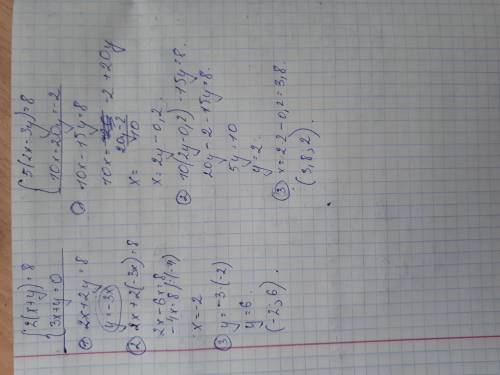 2(x+y)=8
3x+y=0
① 2x+2y=8
y=-3x
② 2x+2(-3x)=8
2x-6x=8
-4x=8 |:(-4)
x=-2
③ y=-3·(-2)
y=6
(-2;6).
5(2x-3y)=8
10x-20y=-2
① 10x-15y=8
10x= -2+20y
x= 20y-2/10
x=2y-0,2.
② 10(2y-0,2)-15y=8.
20y-2-15y=8.
5y=10
y=2.
③ x=2·2-0,2=3,8.
(3,8;2).